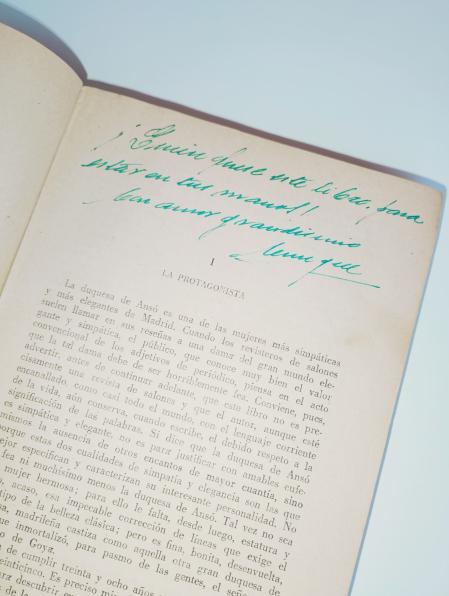 ¡Quien fuese este libro, para
estar en tus manos!
Con amor grandisimo
Enrique
I
LA PROTAGONISTA
La duquesa de Ansó es una de las mujeres más simpáticas
y más elegantes de Madrid. Cuando los revisteros de salones
suelen llamar en sus reseñas a una dama del gran mundo ele-
gante y simpática, el público, que conoce muy bien el valor
convencional de los adjetivos de periódico, piensa en el acto
que la tal dama debe de ser horriblemente fea. Conviene, pues,
advertir, antes de continuar adelante, que este libro no es pre-
cisamente una revista de salones y que el autor, aunque esté
encanallado, como casi todo el mundo, con el lenguaje corriente
de la vida, aún conserva, cuando escribe, el debido respeto a la
significación de las palabras. Si dice que la duquesa de Ansó
es simpática y elegante, no es para justificar con amables eufe-
mismos la ausencia de otros encantos de mayor cuantía, sino
porque estas dos cualidades de simpatía y elegancia son las que
mejor especifican y caracterizan su interesante personalidad. No
fea ni muchísimo menos la duquesa de Ansó. Tal vez no sea
mujer hermosa; para ello le falta, desde luego, estatura y
acaso, esa impecable corrección de líneas que exige el
tipo de la belleza clásica; pero es fina, bonita, desenvuelta,
madrileña castiza como aquella otra gran duquesa de
que inmortalizó, para pasmo de las gentes, el
o de Goya.
de cumplir treinta y ocho años
veinticinco. Es preciso
para descubrir en